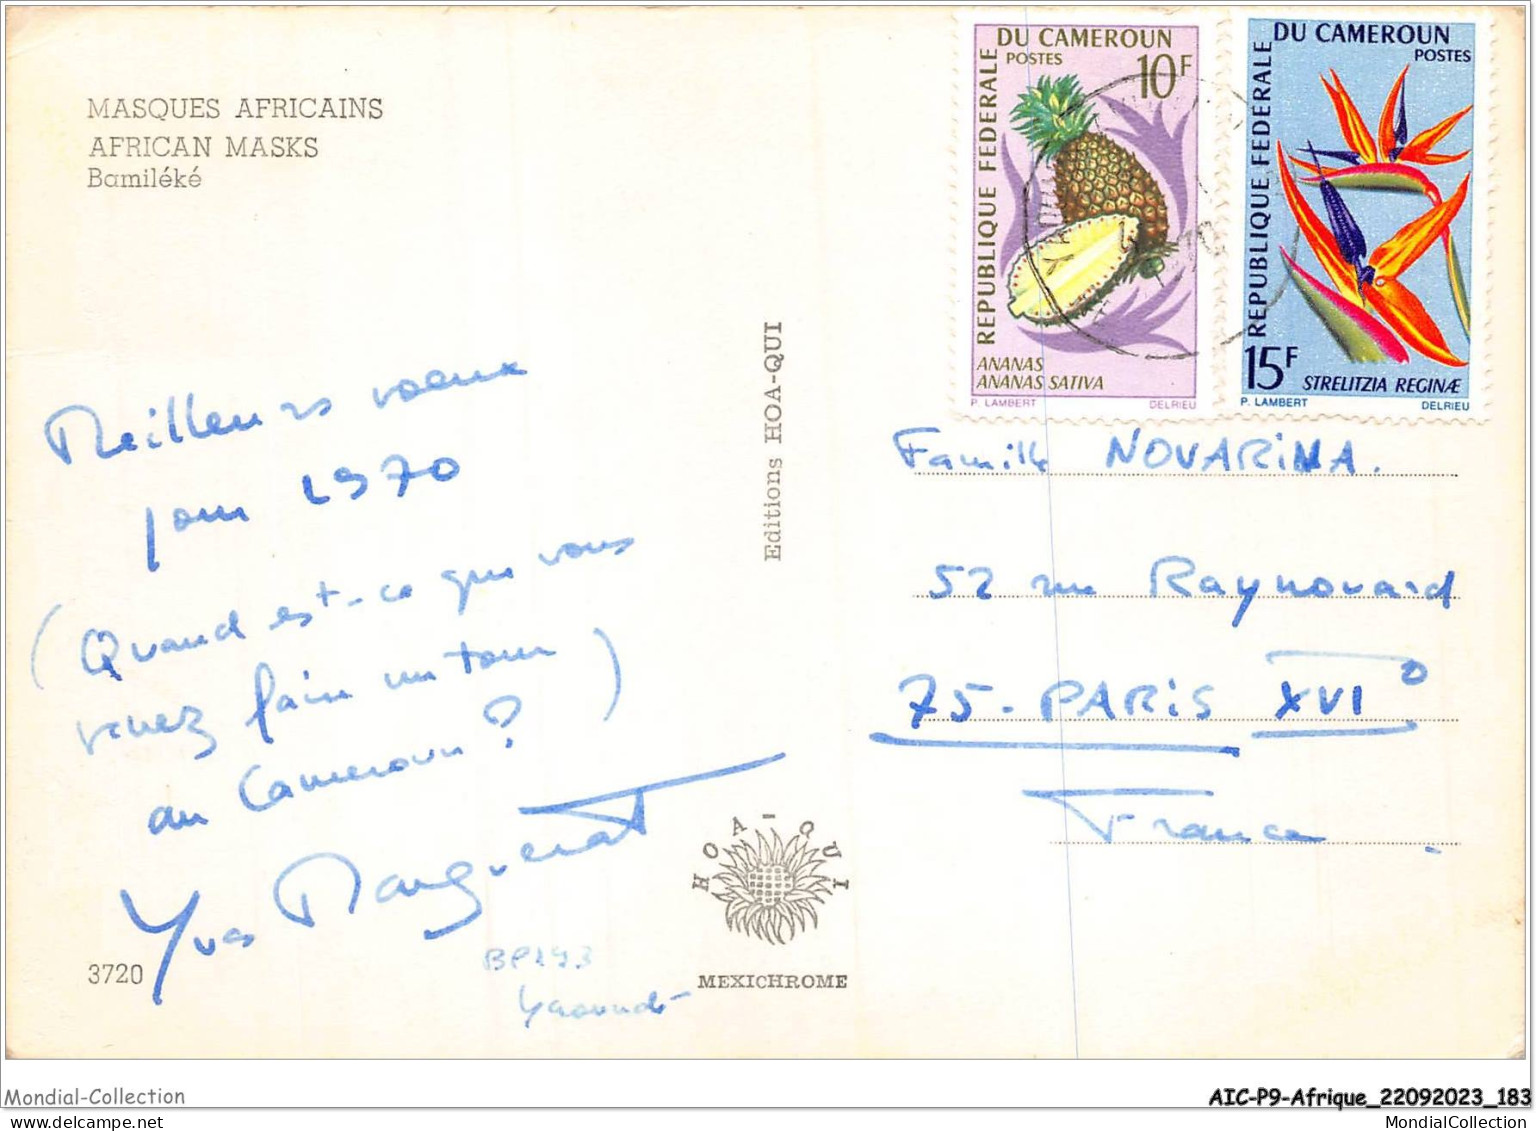 MASQUES AFRICAINS
AFRICAN MASKS
Bamiléké
Meilleurs voeux
pour 1970
(Quand est-ce que vous
venez faire un tour)
au Cameroun ?
Yves Marguerat
BP 193
Yaoundé
3720
Editions HOA-QUI
HOA-QUI
MEXICHROME
REPUBLIQUE FEDERALE
DU CAMEROUN
POSTES
10F
ANANAS
ANANAS SATIVA
P. LAMBERT DELRIEU
REPUBLIQUE FEDERALE
DU CAMEROUN
POSTES
15F
STRELITZIA REGINÆ
P. LAMBERT DELRIEU
Famille NOVARINA.
52 rue Raynouard
75-PARIS XVI°
France
Mondial-Collection
AIC-P9-Afrique_22092023_183
MondialCollection